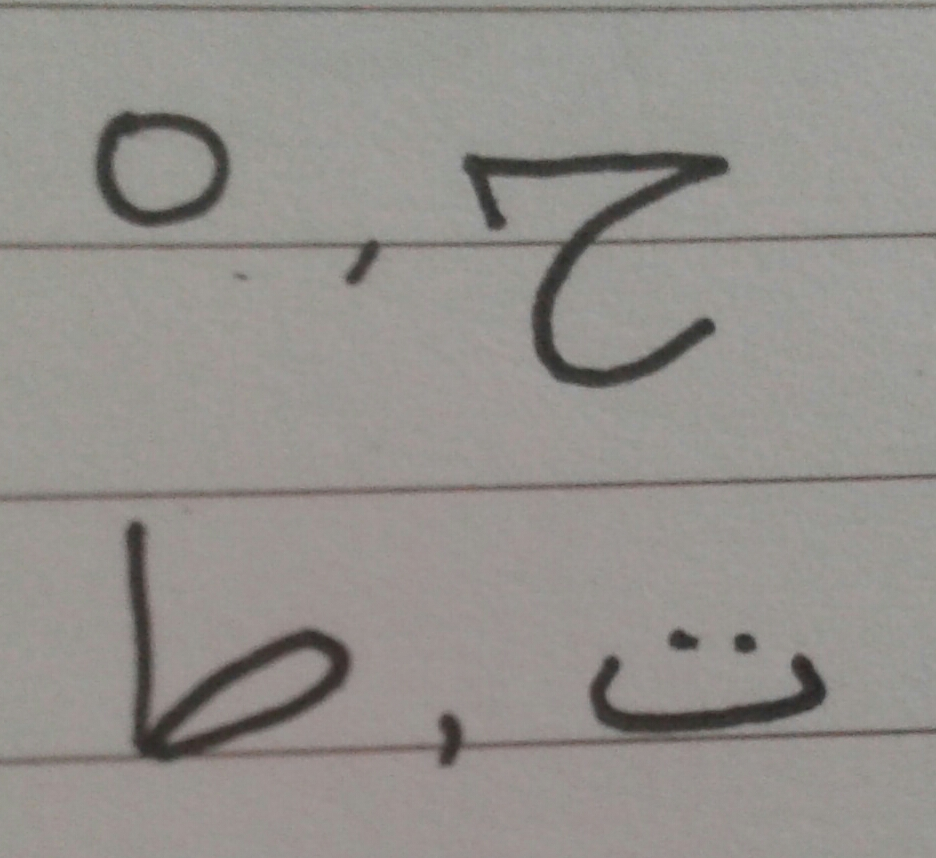 ح , ه
ت , ط